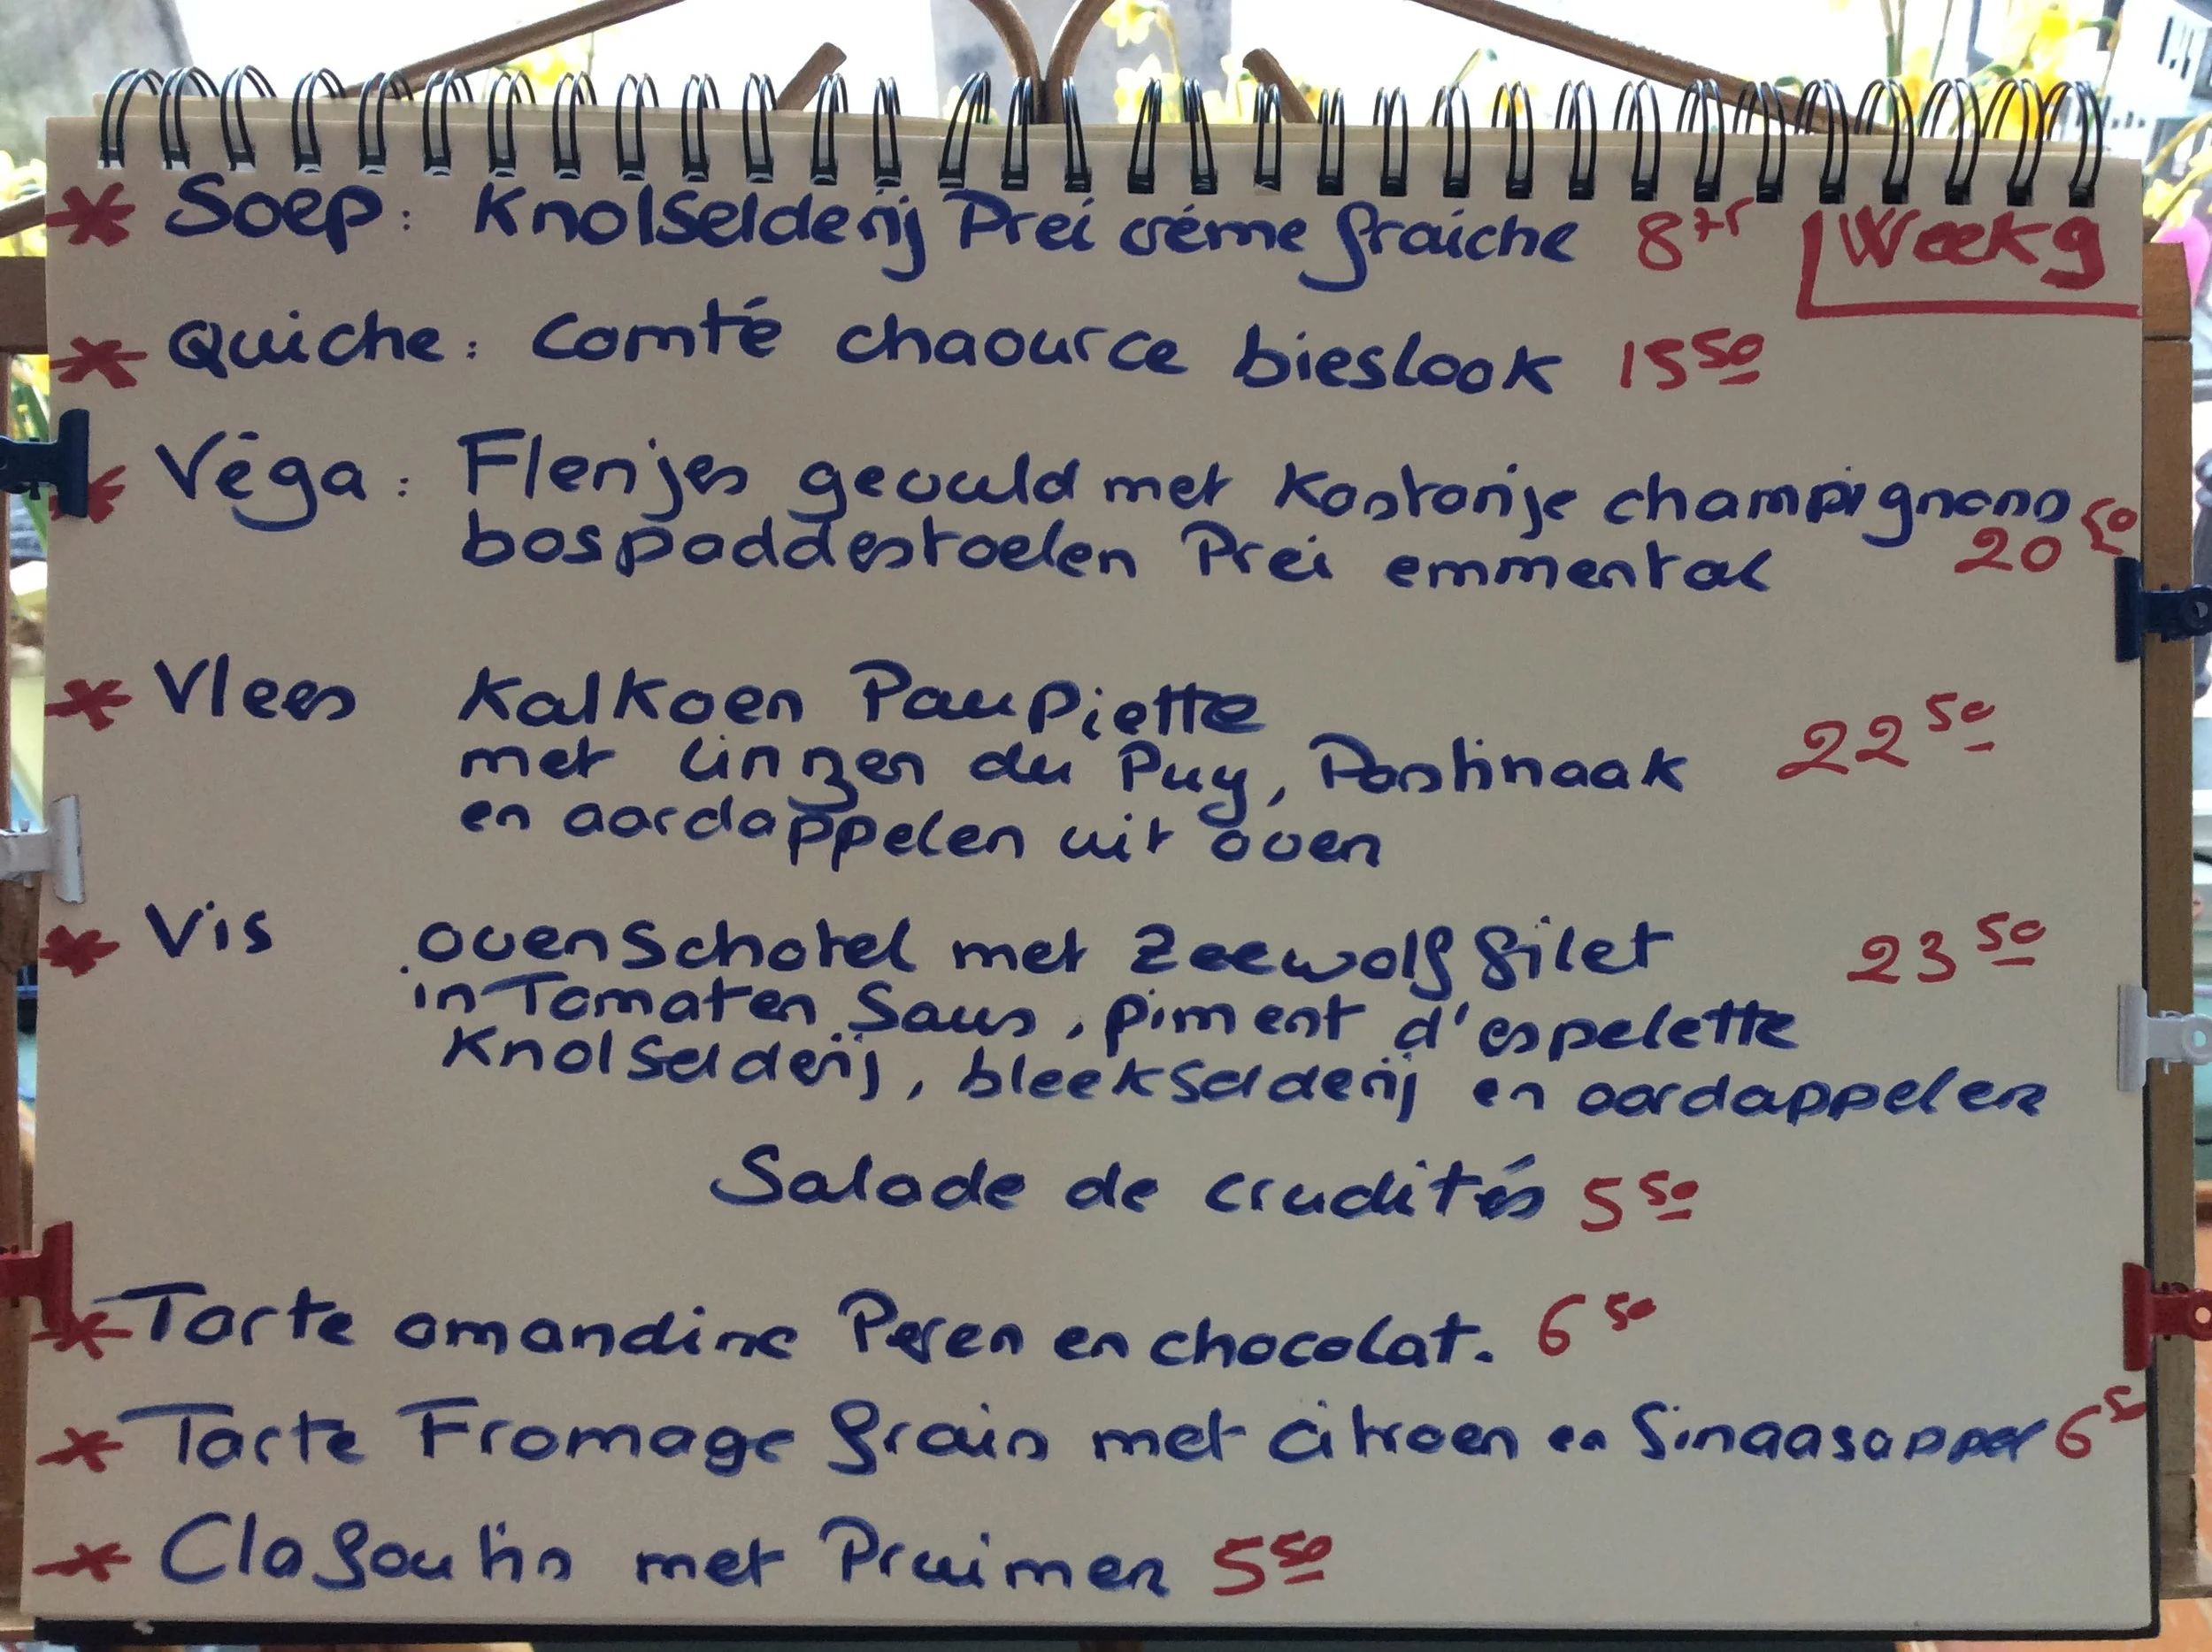 Soep: Knolselderij Prei créme fraiche 8 75 Week 9
Quiche: Comté chaource bieslook 15 50
Véga: Flensjes gevuld met Kastanje champignons
bospaddestoelen Prei emmental 20 50
Vlees Kalkoen Paupiette
met linzen du Puy, Pastinaak 22 50
en aardappelen uit oven
Vis ovenschotel met Zeewolf filet 23 50
in Tomaten Saus, piment d'espelette
Knolselderij, bleekselderij en aardappelen
Salade de crudités 5 50
Tarte amandine Peren en chocolat. 6 50
Tarte Fromage frais met citroen en Sinaasappel 6 5
Clafoutis met Pruimen 5 50